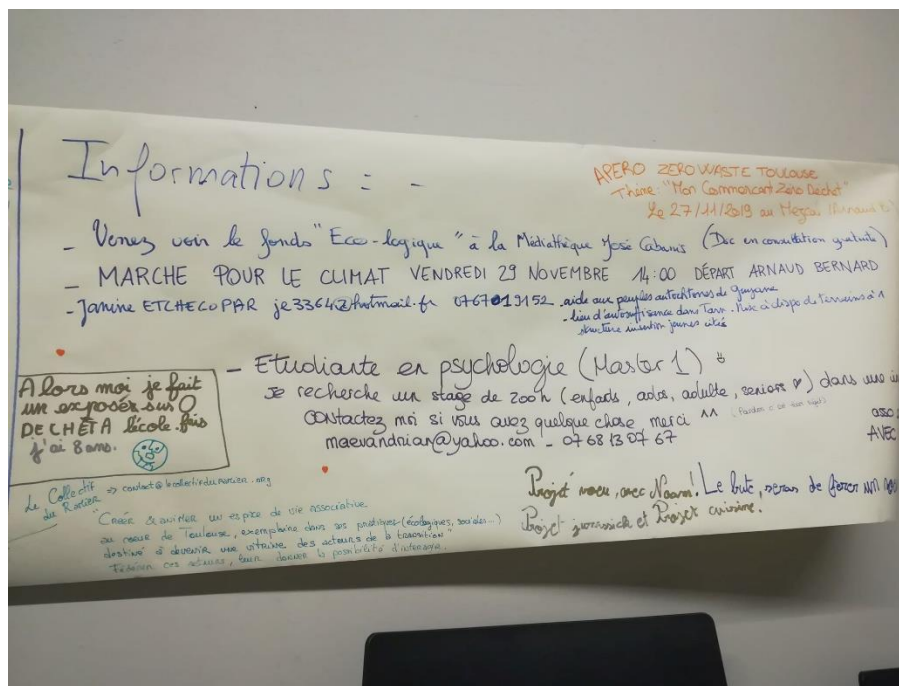 Informations : -
APERO ZERO WASTE TOULOUSE
Thème: "Mon Commerçant Zéro Déchet"
Le 27/11/2019 au
- Venez voir le fonds "Eco-logique" à la Médiathèque José Cabanis (Doc en consultation gratuite)
- MARCHE POUR LE CLIMAT VENDREDI 29 NOVEMBRE 14:00 DÉPART ARNAUD BERNARD
- Janine ETCHECOPAR je3364@hotmail.fr 0767019152 . aide aux peuples autochtones de Guyane
- lieu d'autosuffisance dans Tarn. Mise à dispo de terrains à 1
structure insertion jeunes cités
- Etudiante en psychologie (Master 1)
Je recherche un stage de 200h (enfants, ados, adulte, seniors ♥) dans une
contactez moi si vous avez quelque chose, merci ^^
maevandrian@yahoo.com - 07 68 13 07 67
asso
AVEC
Alors moi je fait
un exposés sur 0
DECHET A l'école.
j'ai 8 ans.
Le Collectif
du Ratier => contact@
"Créer & animer un espace de vie associative
au coeur de Toulouse, exemplaire dans ses pratiques (écologiques, sociales...)
destiné à devenir une vitrine des acteurs de la transition"
Fédérer ces acteurs, leur donner la possibilité d'interagir.
Projet avec Le but, seras de
Projet et Projet cuisine.